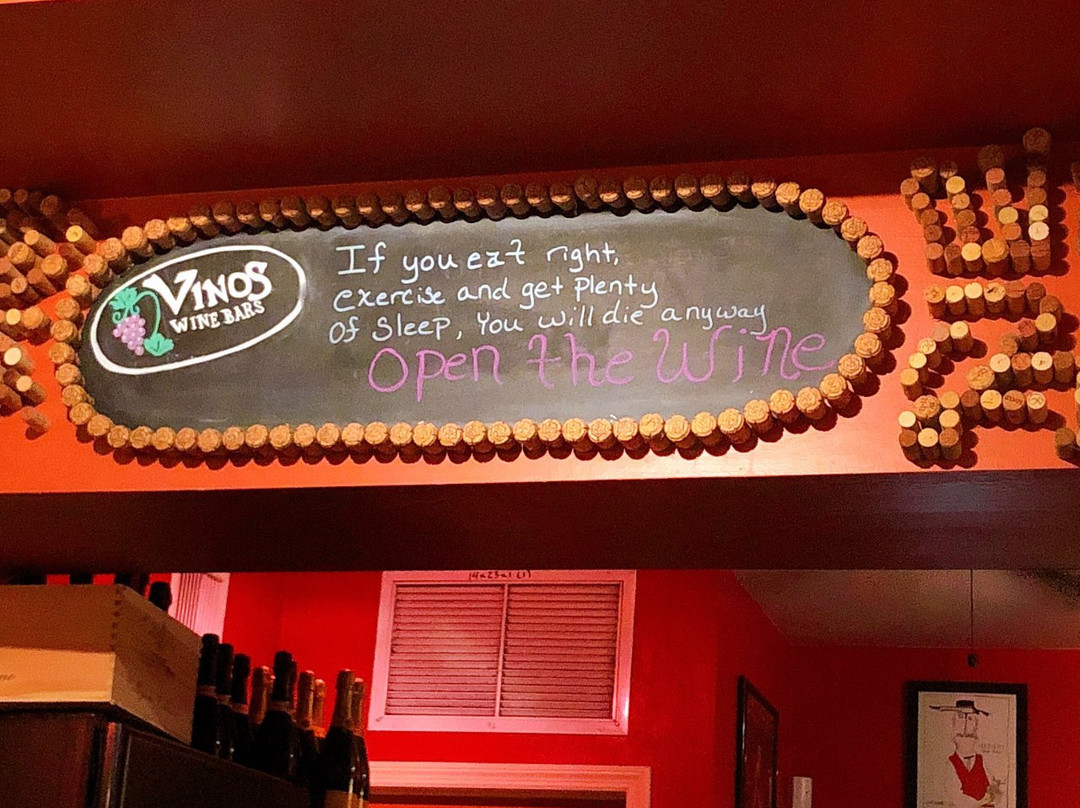 VINOS
WINE BARS
If you eat right,
exercise and get plenty
Of Sleep, You will die anyway
Open the Wine
14x25x1 (1)